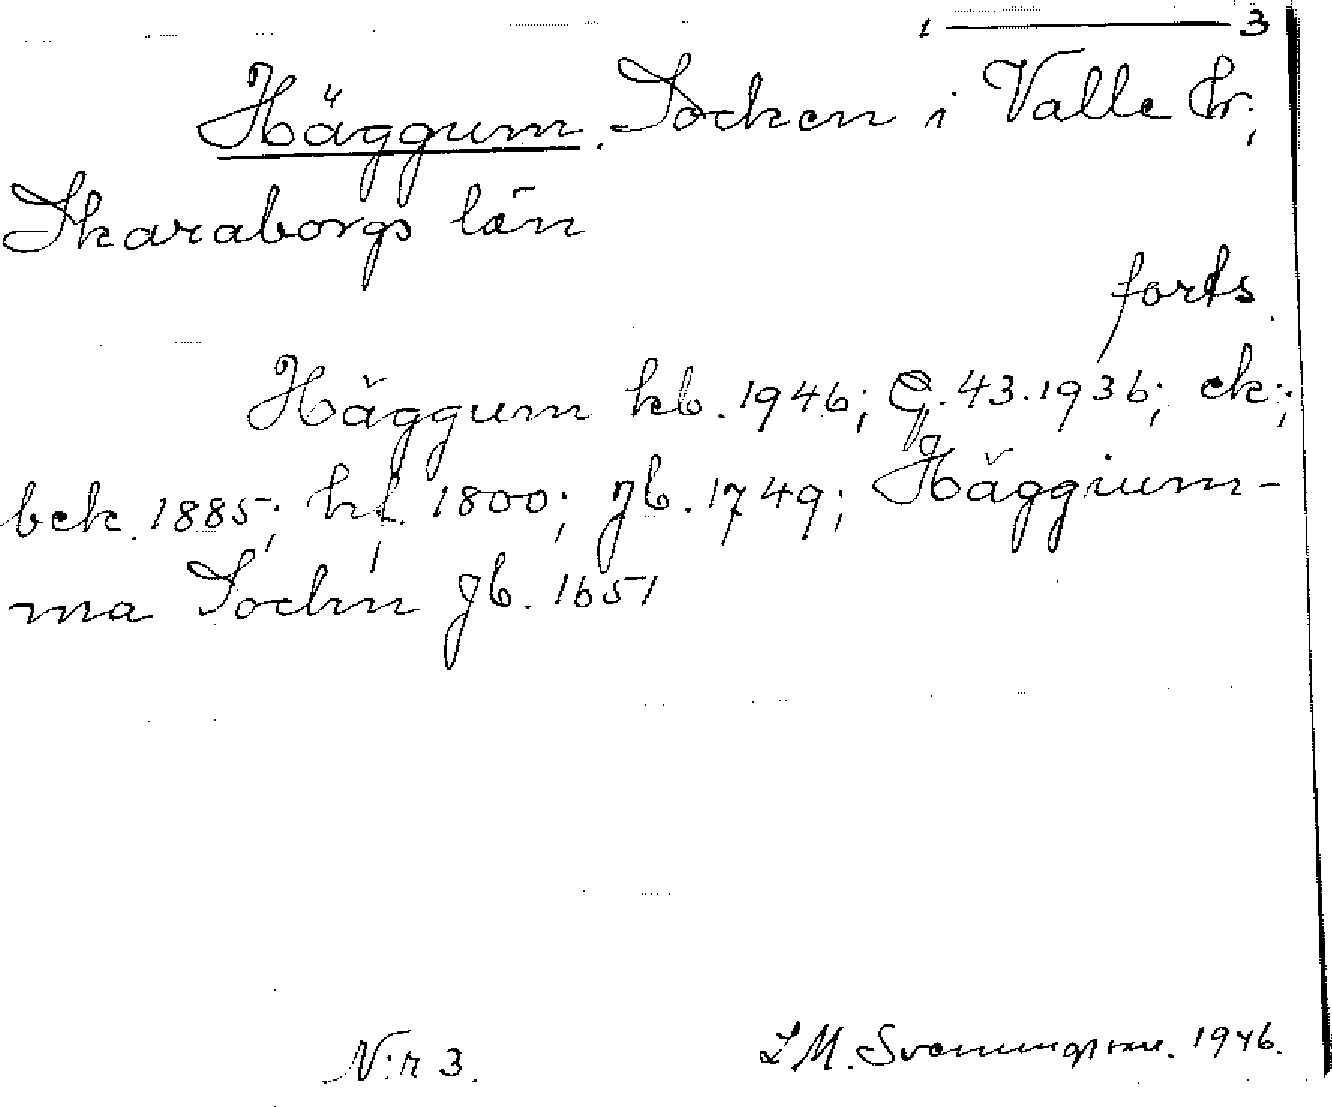 1 — 3
Häggum. Socken i Valle hr;
Skaraborgs län
forts.
Häggum kb. 1946; G. 43. 1936; ek;
bek. 1885; hf. 1800; jb. 1749; Häggium-
ma Sochn jb. 1651
N:r 3. L M. Svenungsson. 1946.